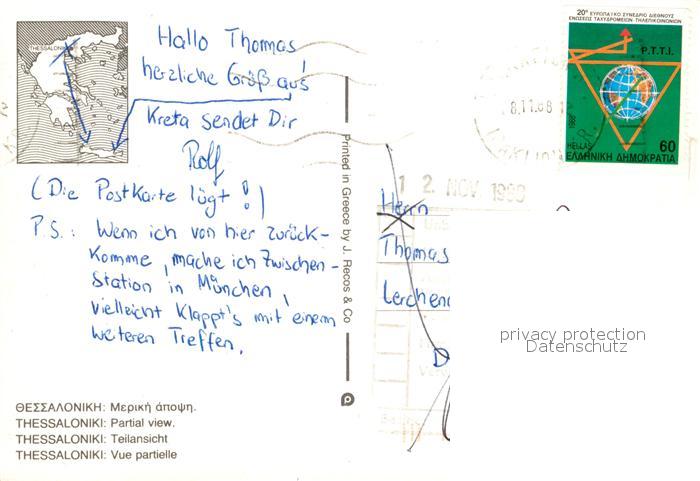 THESSALONIKI
Hallo Thomas!
herzliche Grüß aus
Kreta sendet Dir
Rolf
(Die Postkarte lügt!)
P.S.: Wenn ich von hier zurück-
komme, mache ich Zwischen-
station in München,
vielleicht klappt's mit einem
weiteren Treffen.
ΘΕΣΣΑΛΟΝΙΚΗ: Μερική άποψη.
THESSALONIKI: Partial view.
THESSALONIKI: Teilansicht
THESSALONIKI: Vue partielle
Printed in Greece by J. Recos & Co
20° ΕΥΡΩΠΑΪΚΟ ΣΥΝΕΔΡΙΟ ΔΙΕΘΝΟΥΣ
ΕΝΩΣΕΩΣ ΤΑΧΥΔΡΟΜΕΙΩΝ ΤΗΛΕΠΙΚΟΙΝΩΝΙΩΝ
P.T.T.I.
1988
HELLAS 60
ΕΛΛΗΝΙΚΗ ΔΗΜΟΚΡΑΤΙΑ
12. NOV 1988
Herrn
Thomas
privacy protection
Datenschutz